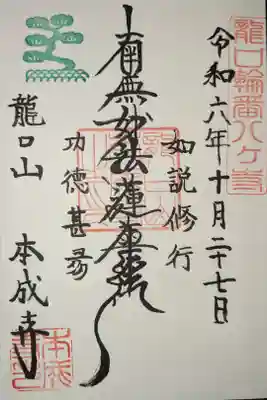 龍口輪番八ヶ寺
令和六年十月二十七日
如説修行
南無妙法蓮華経
功德甚多
龍口山 本成寺